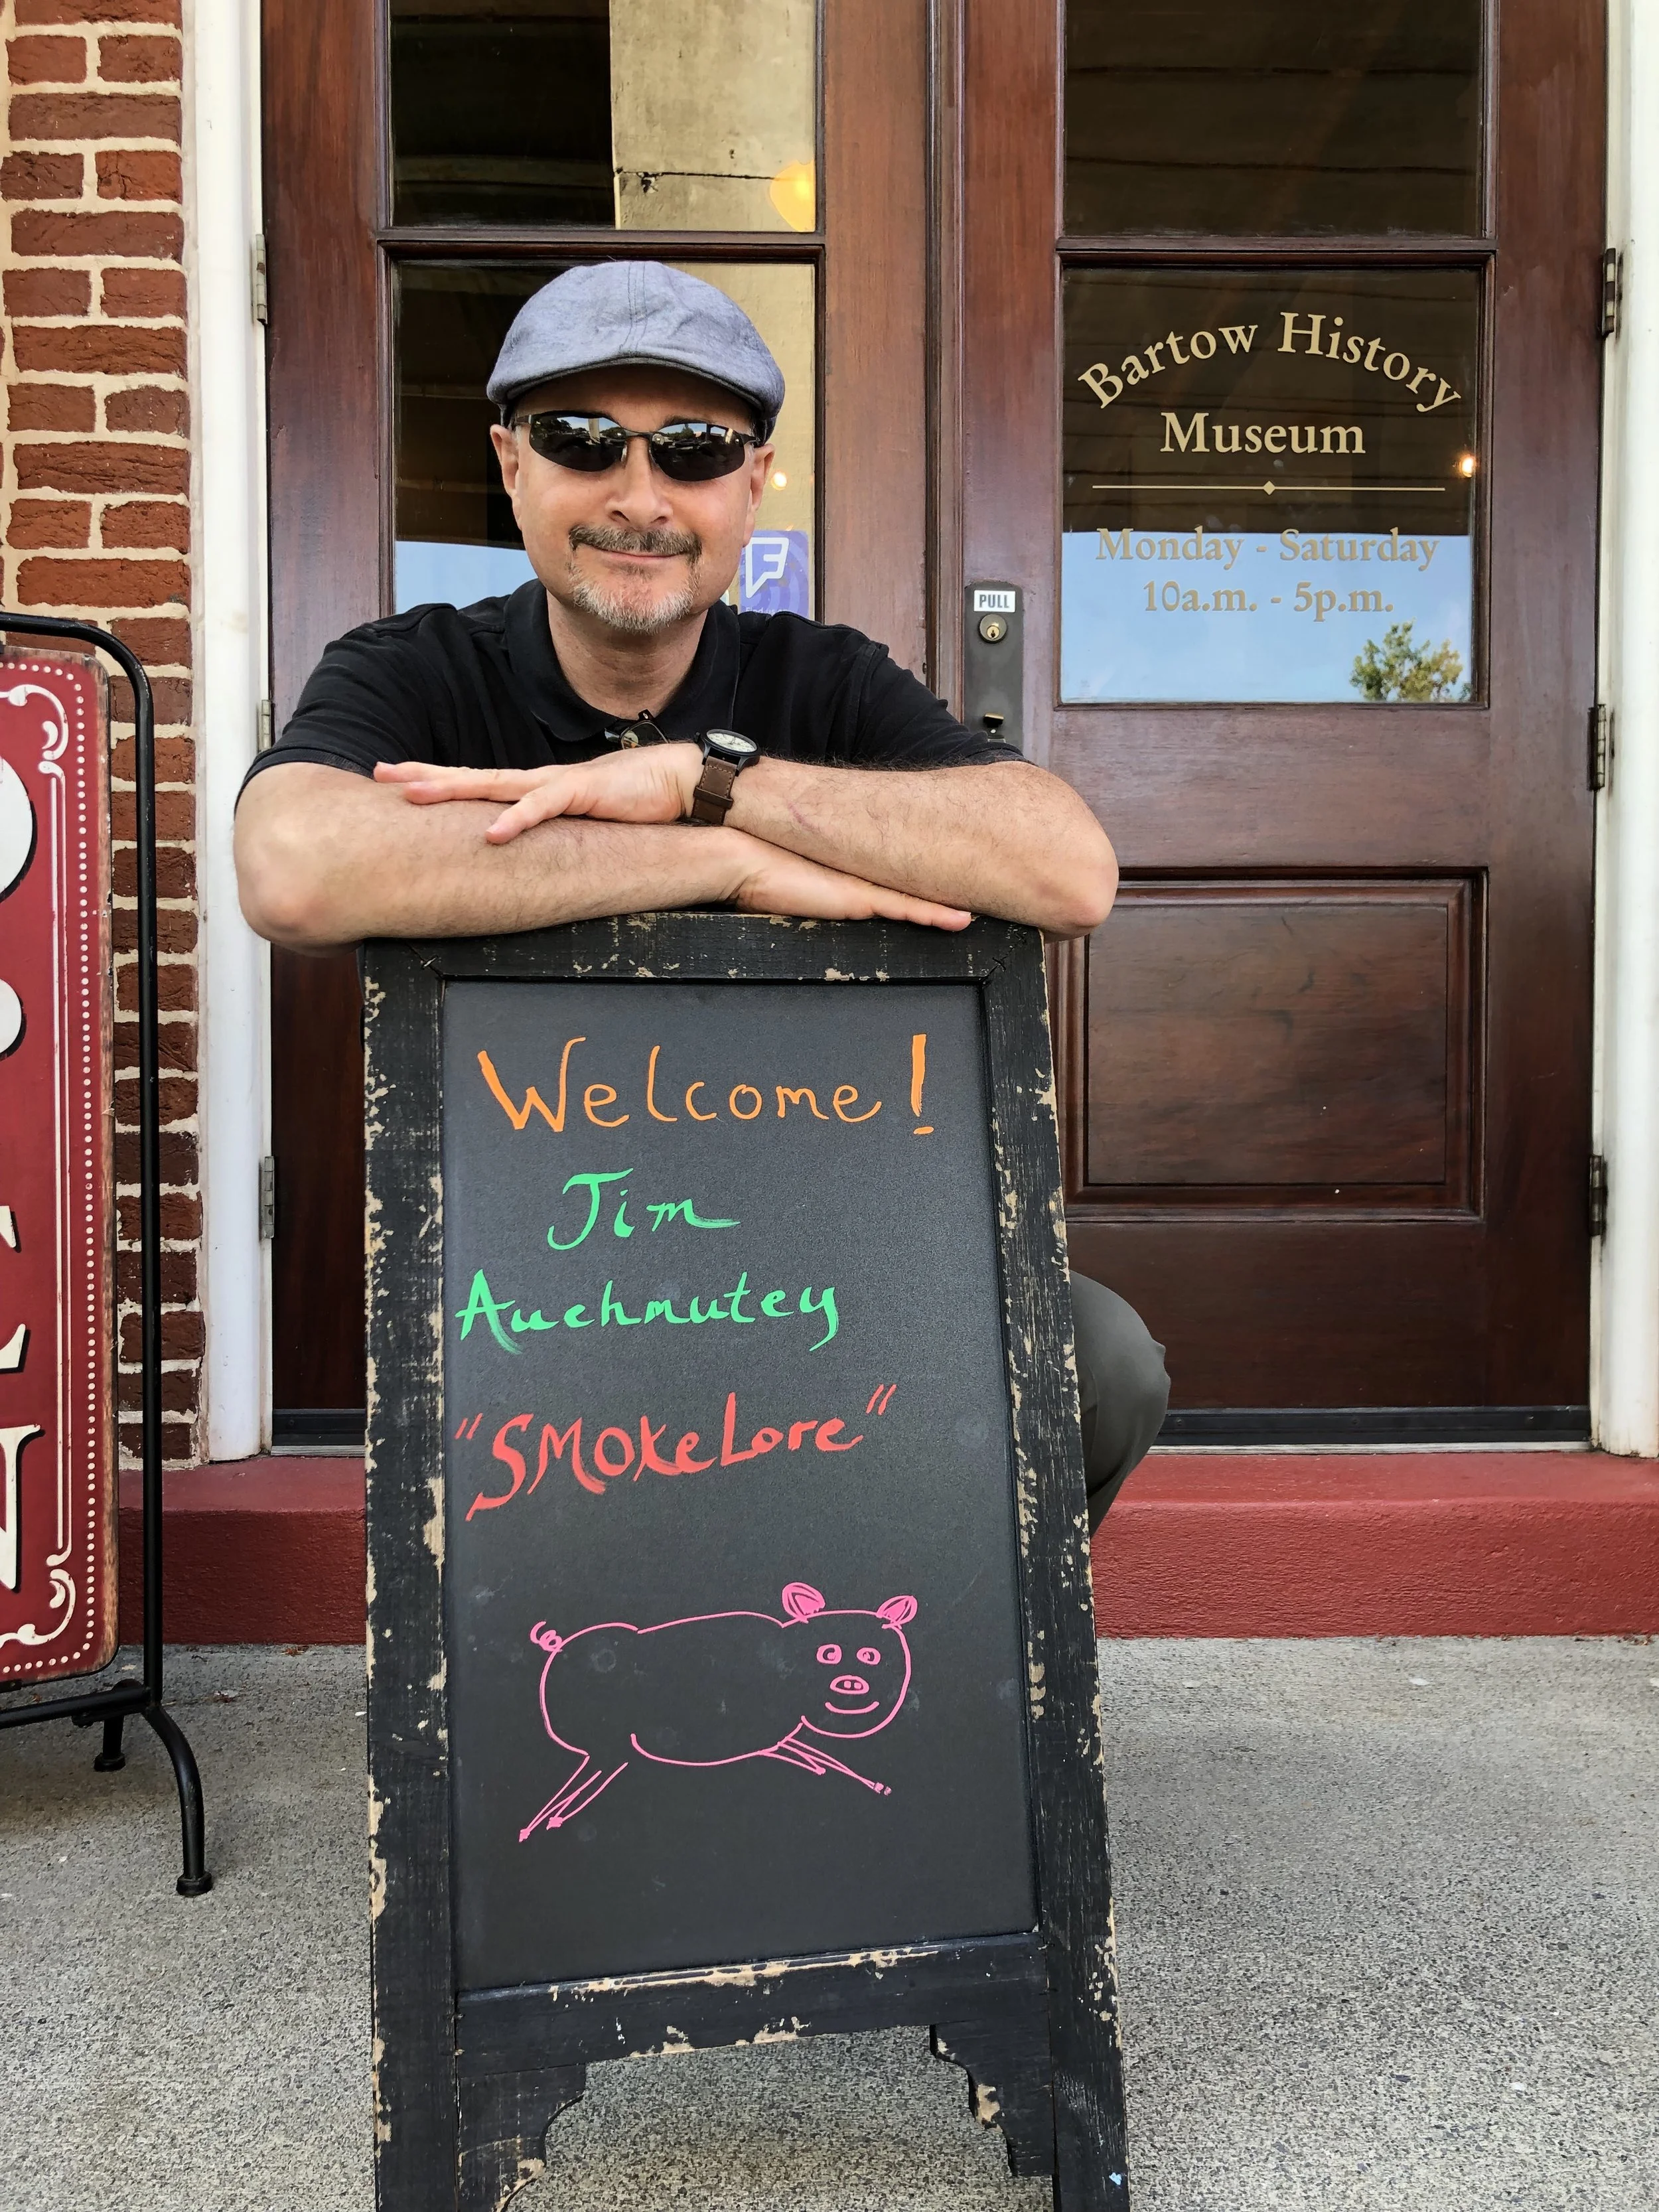 Bartow History
Museum
Monday - Saturday
10a.m. - 5p.m.
PULL
Welcome!
Jim
Auchmutey
"SMOKeLore"